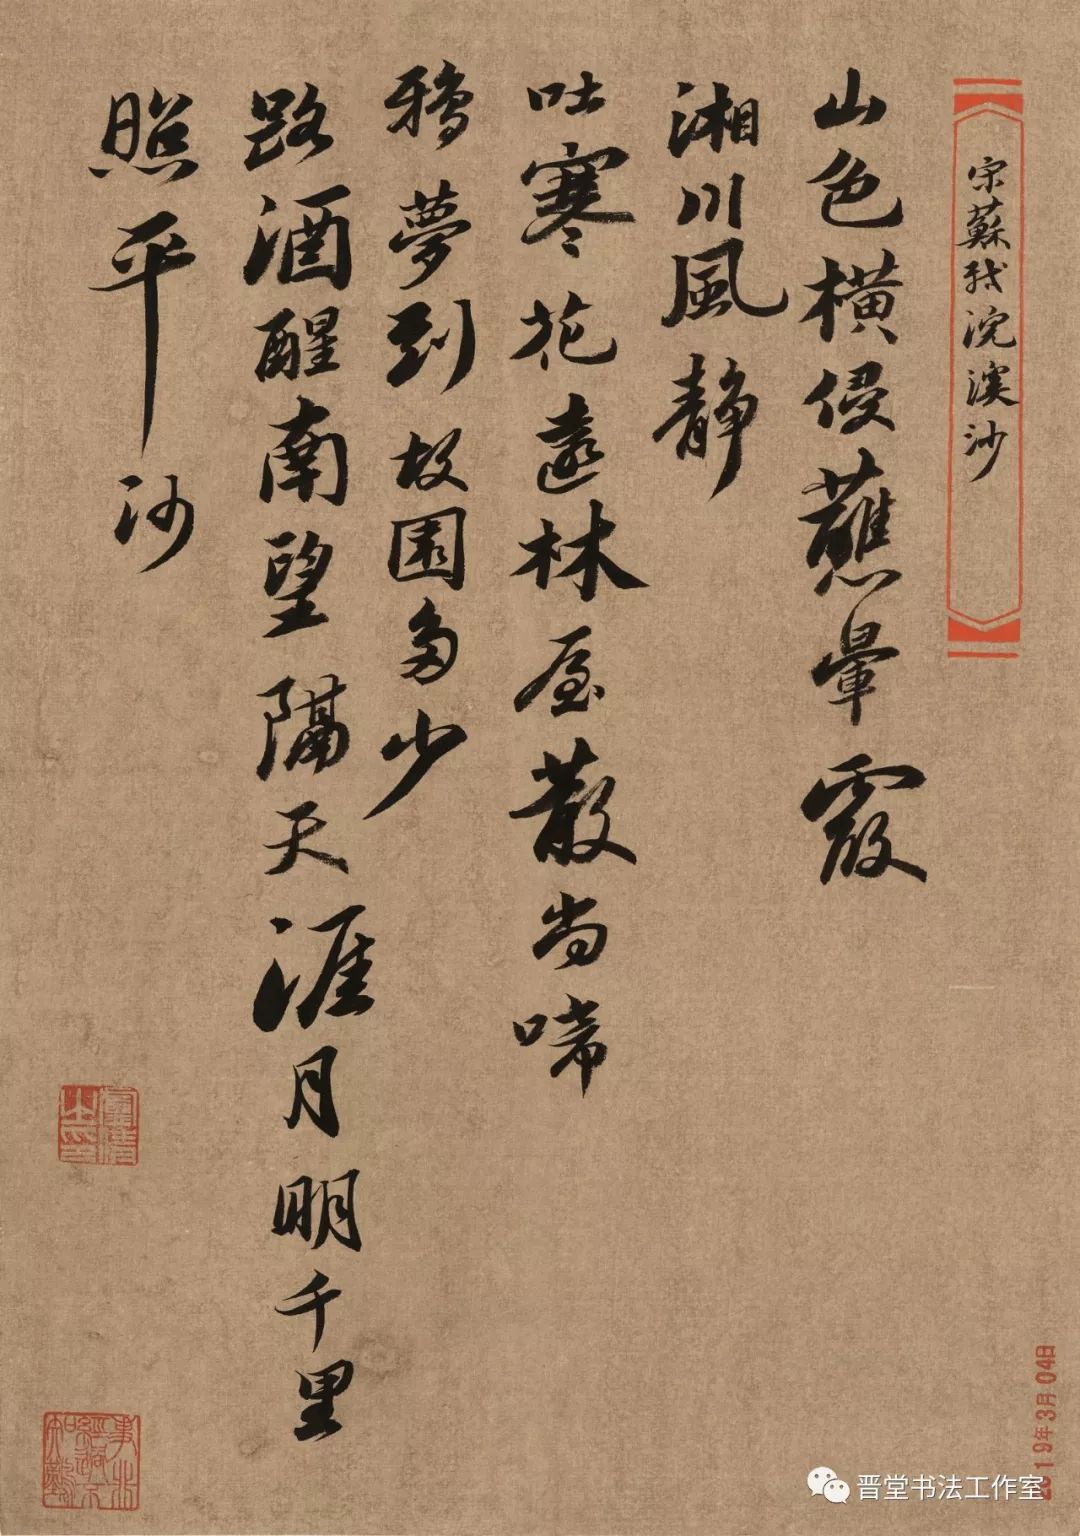 宋蘇軾浣溪沙
山色橫侵蘸暈霞
湘川風靜
吐寒花遠林屋散尚啼
鴉夢到故園多少
路酒醒南望隔天涯月明千里
照平沙
2019年3月04日
晋堂书法工作室